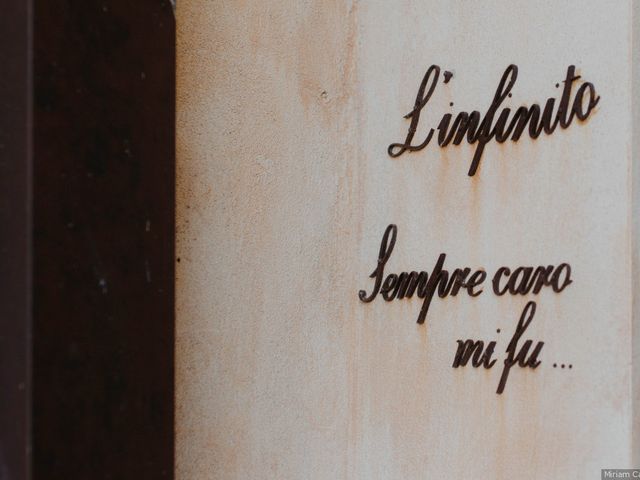 L'infinito
Sempre caro
mi fu ...
Miriam